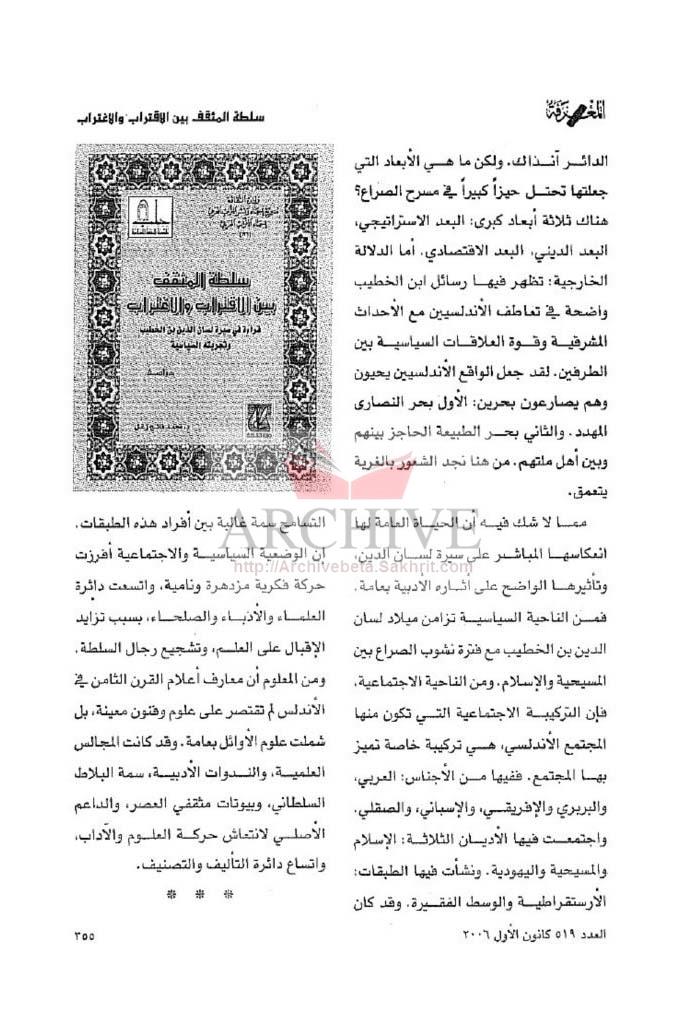 المعرفة
سلطة المثقف بين الاقتراب والاغتراب
الدائر آنذاك. ولكن ما هي الأبعاد التي
جعلتها تحتل حيزاً كبيراً في مسرح الصراع؟
هناك ثلاثة أبعاد كبرى: البعد الاستراتيجي،
البعد الديني، البعد الاقتصادي. أما الدلالة
الخارجية: تظهر فيها رسائل ابن الخطيب
واضحة في تعاطف الأندلسيين مع الأحداث
المشرقية وقوة العلاقات السياسية بين
الطرفين. لقد جعل الواقع الأندلسيين يحيون
وهم يصارعون بحرين: الأول بحر النصارى
المهدد. والثاني بحر الطبيعة الحاجز بينهم
وبين أهل ملتهم. من هنا نجد الشعور بالغربة
يتعمق.
مما لا شك فيه أن الحياة العامة لها
انعكاسها المباشر على سيرة لسان الدين،
وتأثيرها الواضح على آثاره الادبية بعامة.
فمن الناحية السياسية تزامن ميلاد لسان
الدين بن الخطيب مع فترة نشوب الصراع بين
المسيحية والإسلام. ومن الناحية الاجتماعية،
فإن التركيبة الاجتماعية التي تكون منها
المجتمع الأندلسي، هي تركيبة خاصة تميز
بها المجتمع. ففيها من الأجناس: العربي،
والبربري والإفريقي، والإسباني، والصقلي.
واجتمعت فيها الأديان الثلاثة: الإسلام
والمسيحية واليهودية. ونشأت فيها الطبقات:
الأرستقراطية والوسط الفقيرة. وقد كان
سلطة المثقف
بين الاقتراب والاغتراب
قراءة في سيرة لسان الدين بن الخطيب
وتجربته السياسية
دراسة
التسامح سمة غالبة بين أفراد هذه الطبقات.
ان الوضعية السياسية والاجتماعية أفرزت
حركة فكرية مزدهرة ونامية، واتسعت دائرة
العلماء والأدباء والصلحاء، بسبب تزايد
الإقبال على العلم، وتشجيع رجال السلطة.
ومن المعلوم أن معارف أعلام القرن الثامن في
الأندلس لم تقتصر على علوم وفنون معينة، بل
شملت علوم الأوائل بعامة. وقد كانت المجالس
العلمية، والندوات الأدبية، سمة البلاط
السلطاني، وبيوتات مثقفي العصر، والداعم
الأصلي لانتعاش حركة العلوم والآداب،
واتساع دائرة التأليف والتصنيف.
* * *
ARCHIVE
http://Archivebeta.Sakhrit.com
العدد ٥١٩ كانون الأول ٢٠٠٦
٣٥٥